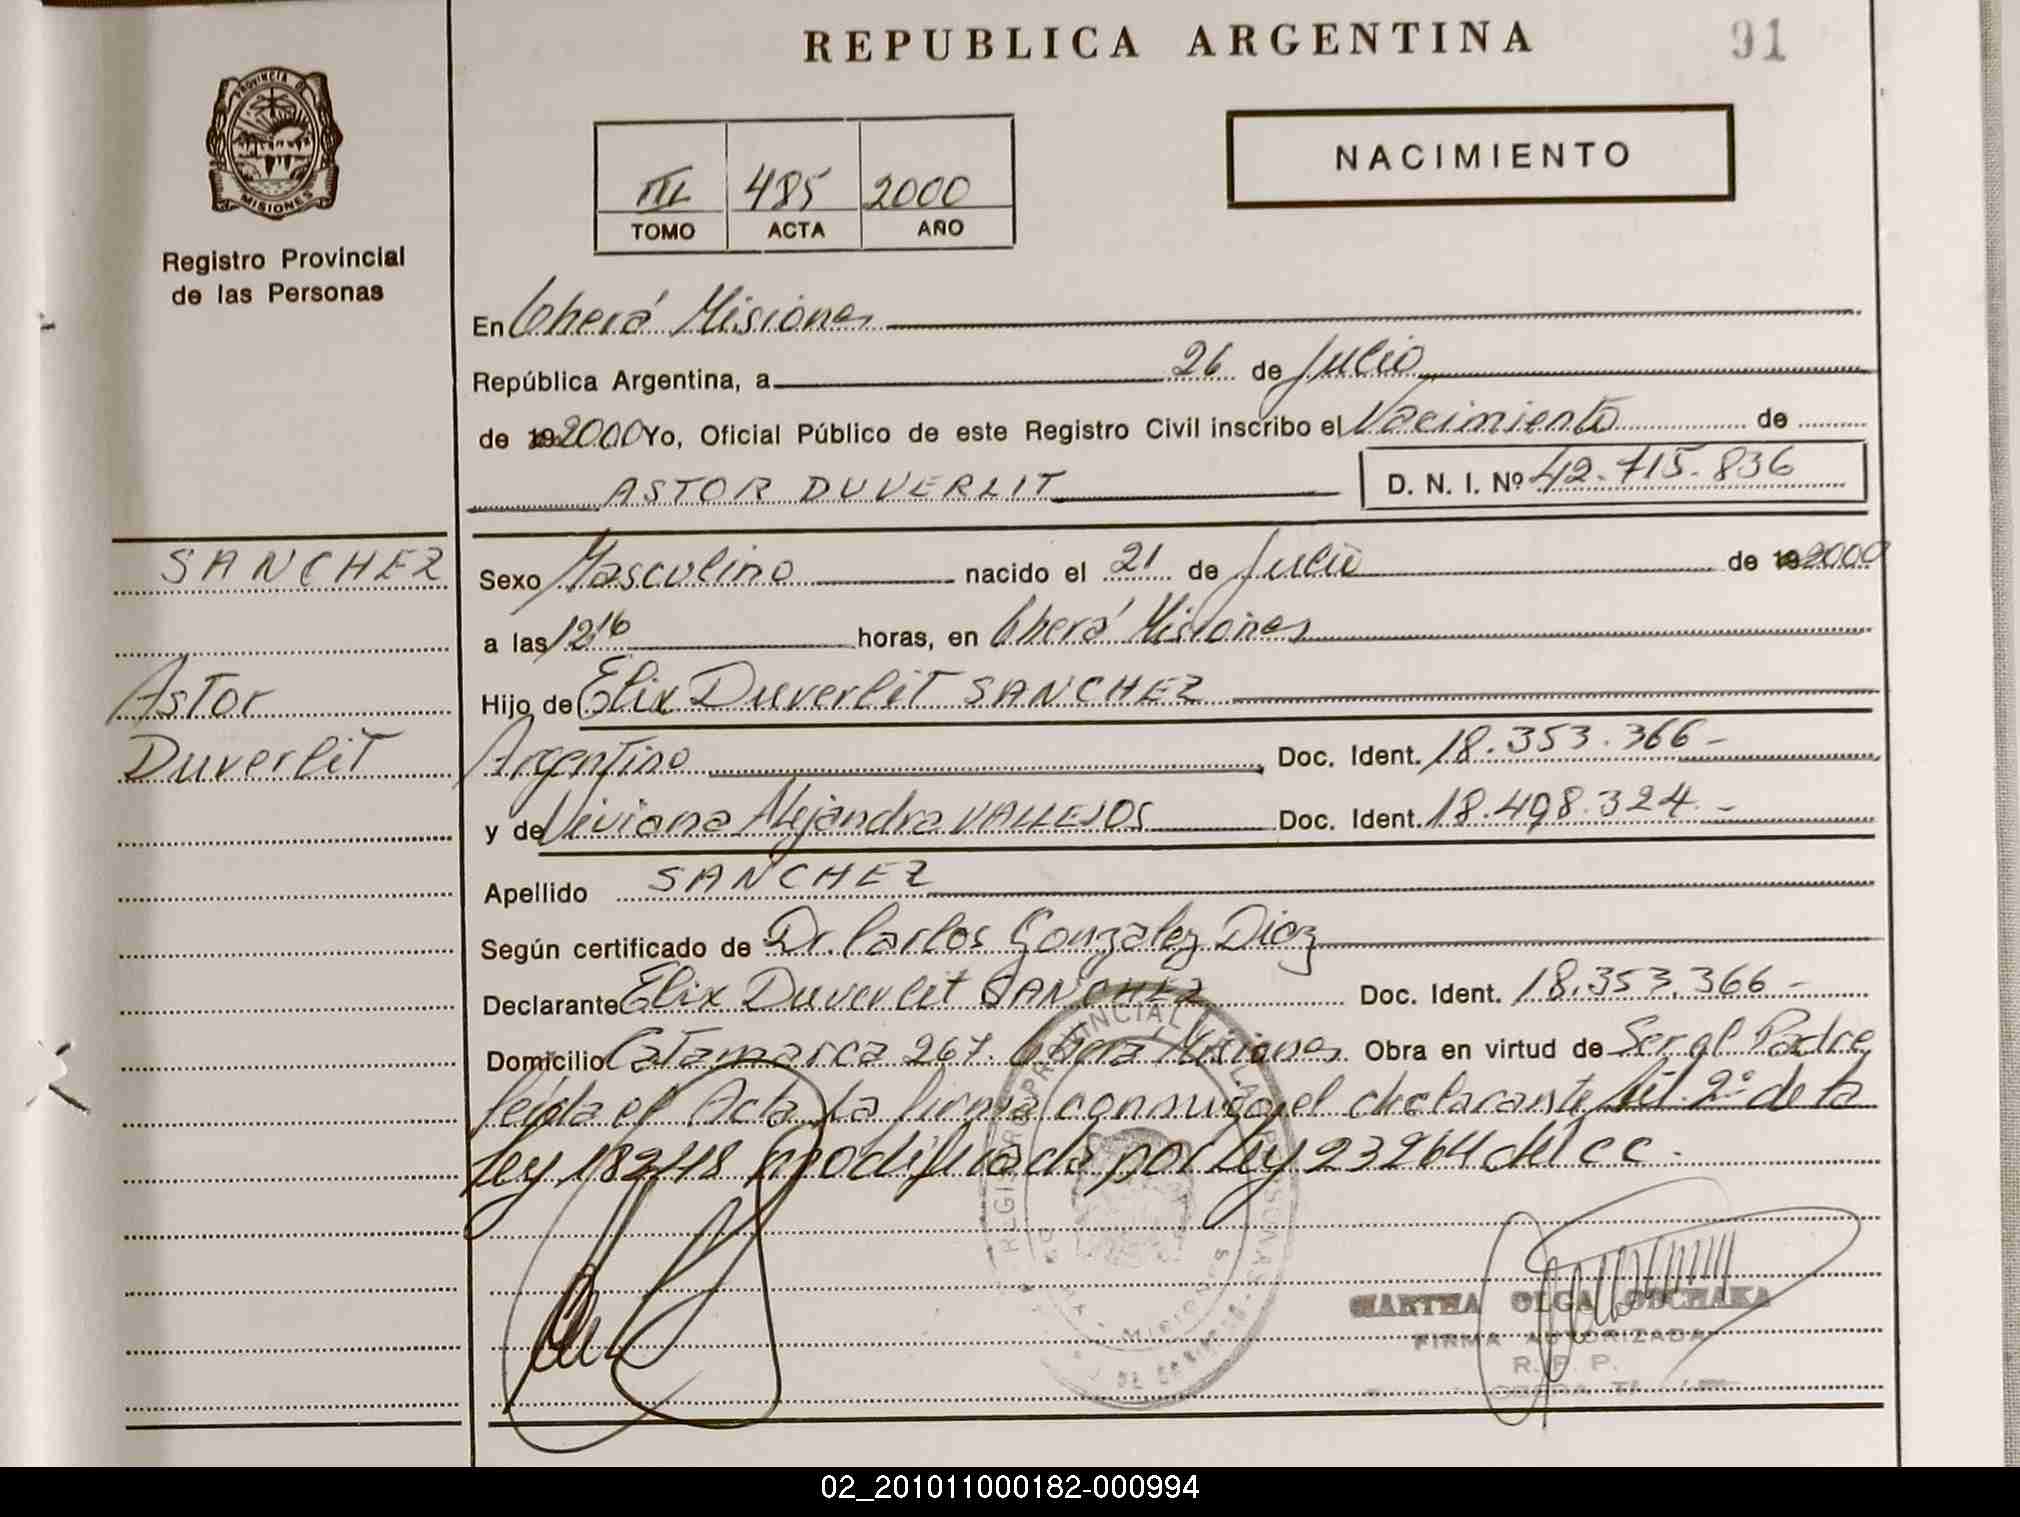 REPUBLICA ARGENTINA
91
PROVINCIA DE
MISIONES
Registro Provincial
de las Personas
III 485 2000
TOMO ACTA AÑO
NACIMIENTO
En Oberá Misiones
República Argentina, a 26 de Julio
de 192000 Yo, Oficial Público de este Registro Civil inscribo el Nacimiento de
ASTOR DUVERLIT D. N. I. Nº 42.715.836
SANCHEZ
Astor
Duverlit
Sexo Masculino nacido el 21 de Julio de 192000
a las 12 16 horas, en Oberá Misiones
Hijo de Elix Duverlit SANCHEZ
Argentino Doc. Ident. 18.353.366-
y de Viviana Alejandra VALLEJOS Doc. Ident. 18.498.324.-
Apellido SANCHEZ
Según certificado de Dr. Carlos Gonzalez Diaz
Declarante Elix Duverlit SANCHEZ Doc. Ident. 18.353.366-
Domicilio Catamarca 267. Oberá Misiones Obra en virtud de Ser el Padre
Leída el Acta la firma conmigo el declarante Art. 2º de la
Ley 18248 modificada por Ley 23264 del C C.
REGISTRO PROVINCIAL DE LAS PERSONAS
MISIONES
MARTHA OLGA
FIRMA AUTORIZADA
R. P. P.
OBERA
02_201011000182-000994